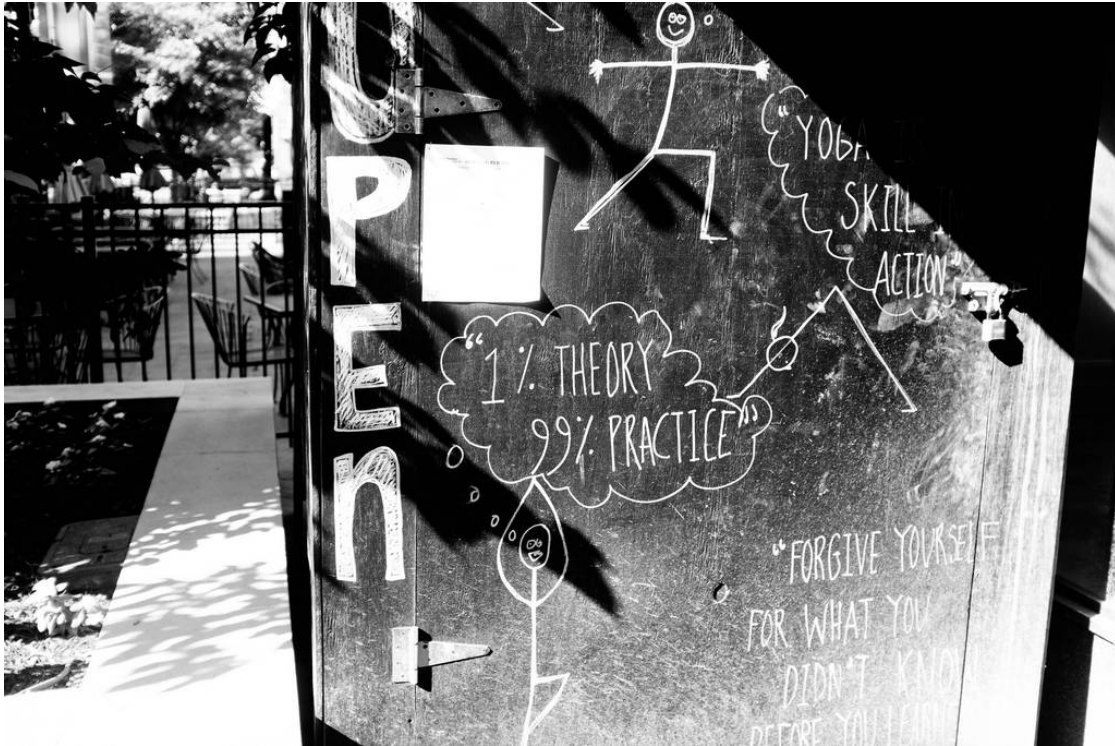 OPEn
"YOGA IS
SKILL IN
ACTION"
"1% THEORY
99% PRACTICE"
"FORGIVE YOURSELF
FOR WHAT YOU
DIDN'T KNOW
BEFORE YOU